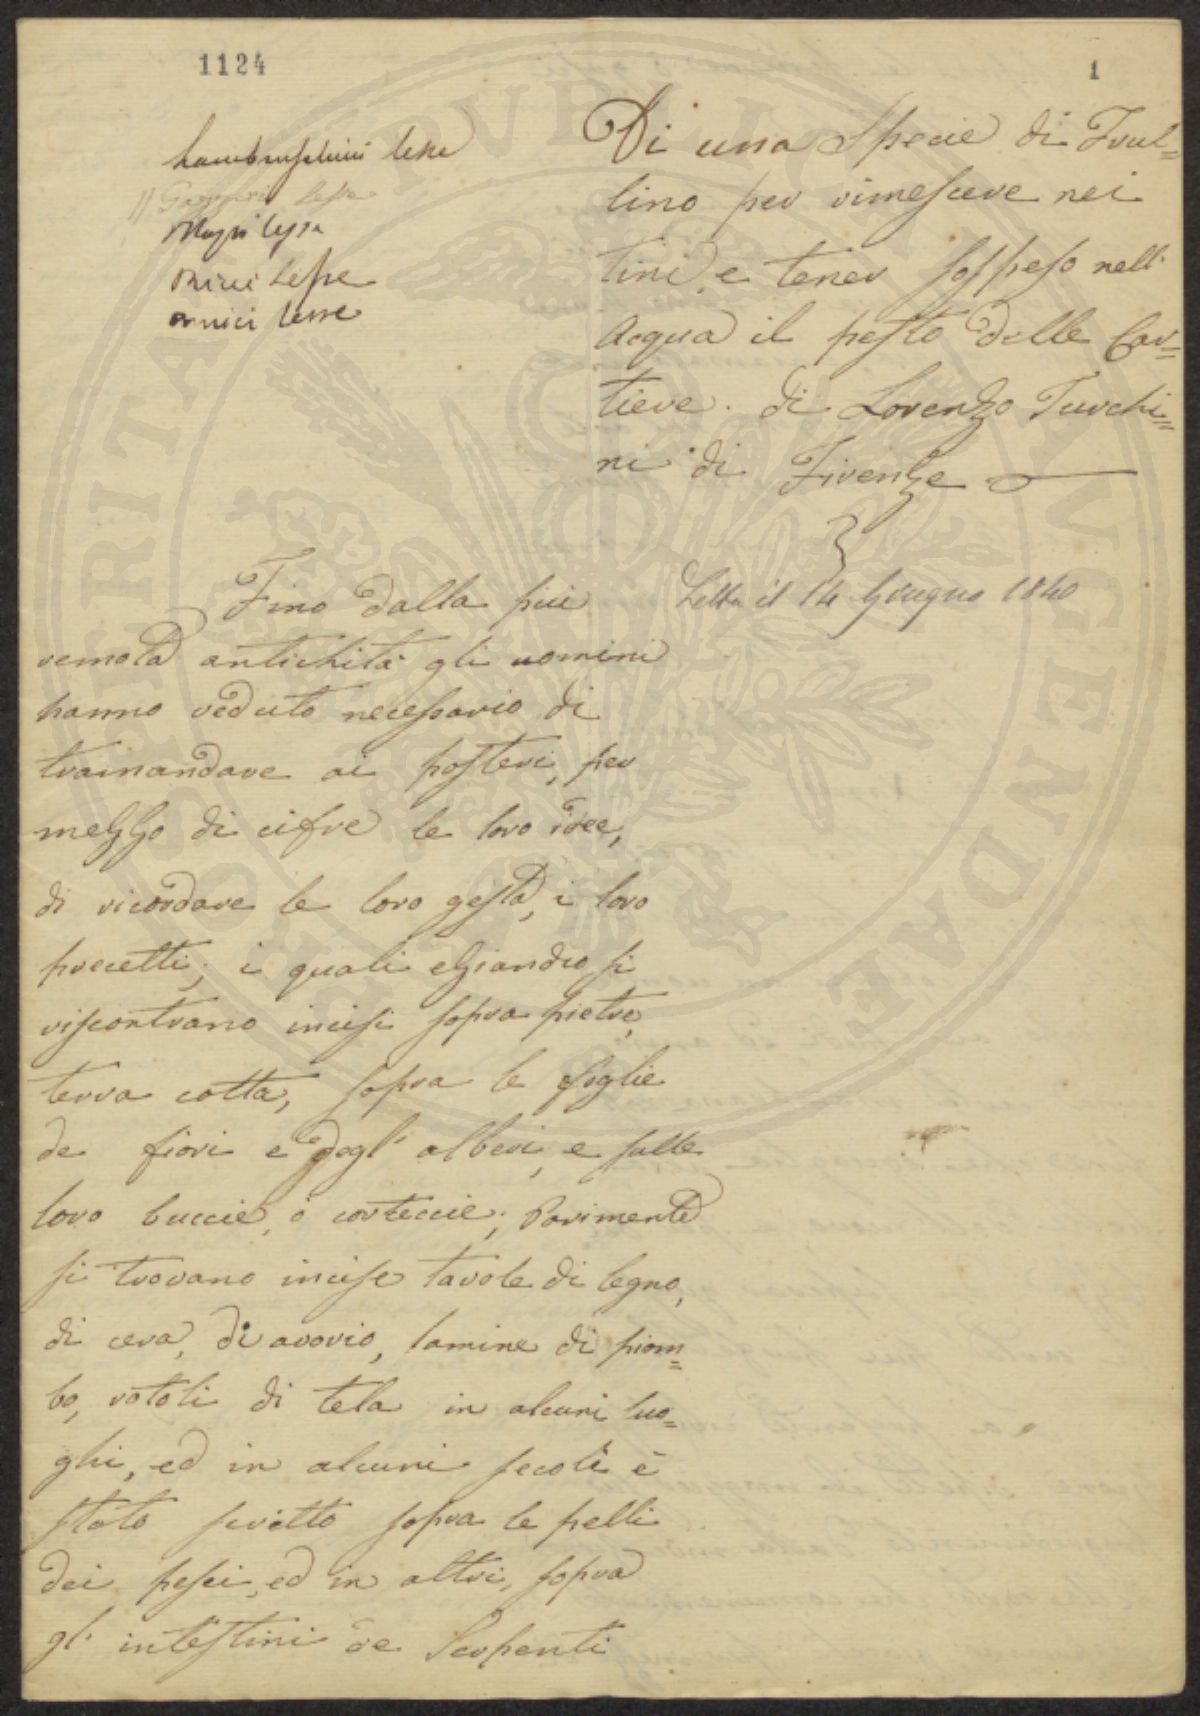 1124
1
Lambruschini lesse
Gazzeri lesse
Magi lesse
Ricci Lesse
Amici lesse
Di una Specie di Frul=
lino per rimescere nei
tini, e tener sospeso nell'
Acqua il pesto delle Car=
tiere. di Lorenzo Turchi=
ni di Firenze
Letta il 14 Giugno 1840
Fino dalla più
remota antichità gli uomini
hanno veduto necessario di
tramandare ai posteri, per
mezzo di cifre le loro idee,
di ricordare le loro gesta, i loro
precetti; i quali eziandio si
riscontrano incisi sopra pietre,
terra cotta, sopra le foglie
de fiori e degl' alberi, e sulle
loro buccie, o corteccie; Parimente
si trovano incise tavole di legno,
di cera, di avorio, lamine di piom=
bo, rotoli di tela in alcuni luo=
ghi, ed in alcuni secoli è
stato scritto sopra le pelli
dei pesci, ed in altri, sopra
gl' intestini de Serpenti